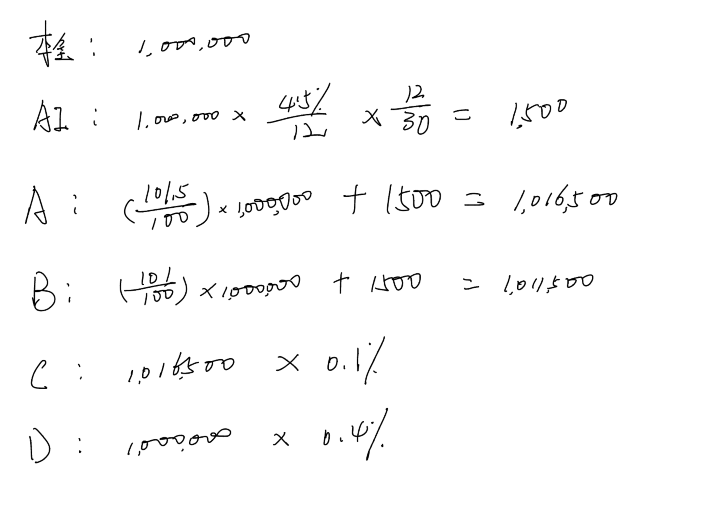 : 1,000,000
AI : 1,000,000 × 4.5%/12 × 12/30 = 1,500
A : (101.5/100) × 1,000,000 + 1500 = 1,016,500
B : (101/100) × 1,000,000 + 1500 = 1,011,500
C : 1,016,500 × 0.1%
D : 1,000,000 × 0.4%